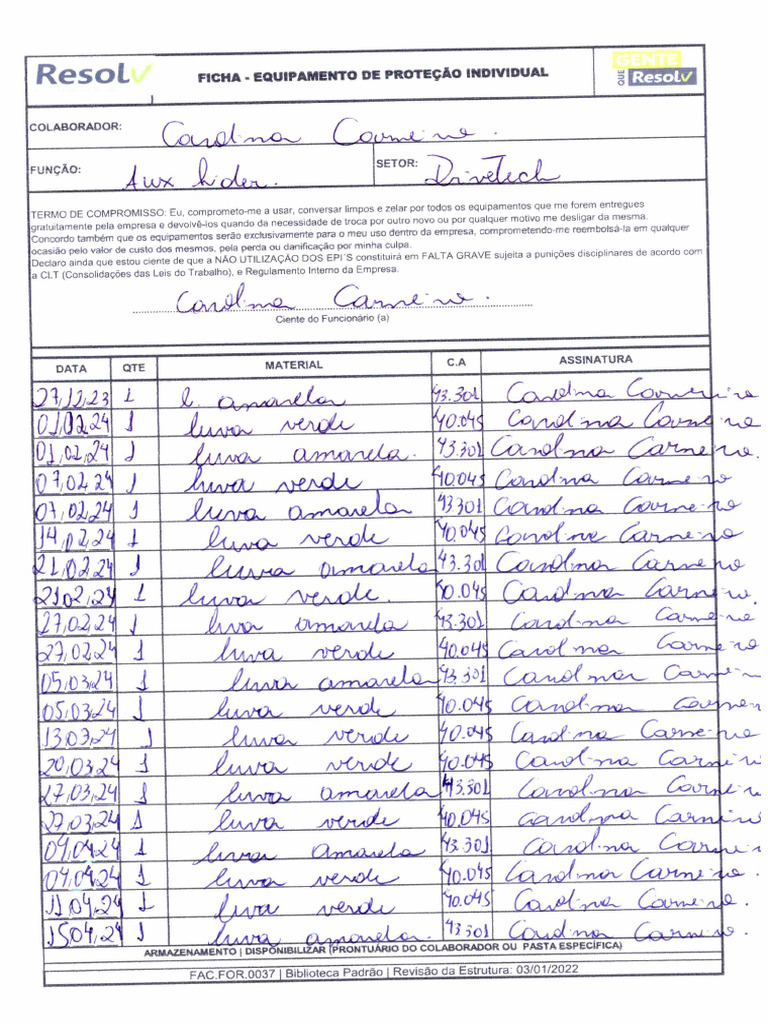 Resolv
FICHA - EQUIPAMENTO DE PROTEÇÃO INDIVIDUAL
GENTE QUE Resolv
COLABORADOR: Carolina Carneiro.
FUNÇÃO: Aux lider. SETOR: DriveTech
TERMO DE COMPROMISSO: Eu, comprometo-me a usar, conversar limpos e zelar por todos os equipamentos que me forem entregues
gratuitamente pela empresa e devolvê-los quando da necessidade de troca por outro novo ou por qualquer motivo me desligar da mesma.
Concordo também que os equipamentos serão exclusivamente para o meu uso dentro da empresa, comprometendo-me reembolsá-la em qualquer
ocasião pelo valor de custo dos mesmos, pela perda ou danificação por minha culpa.
Declaro ainda que estou ciente de que a NÃO UTILIZAÇÃO DOS EPI´S constituirá em FALTA GRAVE sujeita a punições disciplinares de acordo com
a CLT (Consolidações das Leis do Trabalho), e Regulamento Interno da Empresa.
Carolina Carneiro.
Ciente do Funcionário (a)
DATA QTE MATERIAL C.A ASSINATURA
27,12,23 1 l. amarela 43.301 Carolina Carneiro
01,02,24 1 luva verde 40.045 Carolina Carneiro
01,02,24 1 luva amarela. 43.301 Carolina Carneiro.
07,02,24 1 luva verde 40.045 Carolina Carneiro
07,02,24 1 luva amarela 43.301 Carolina Carneiro
14,02,24 1 luva verde 40.045 Carolina Carneiro
21,02,24 1 luva amarela 43.301 Carolina Carneiro
21,02,24 1 luva verde. 40.045 Carolina Carneiro
27,02,24 1 luva amarela 43.301 Carolina Carneiro
27,02,24 1 luva verde 40.045 Carolina Carneiro
05,03,24 1 luva amarela 43.301 Carolina Carneiro
05,03,24 1 luva verde 40.045 Carolina Carneiro
13,03,24 1 luva verde 40.045 Carolina Carneiro
20,03,24 1 luva verde 40.045 Carolina Carneiro
27,03,24 1 luva amarela 43.301 Carolina Carneiro
27,03,24 1 luva verde 40.045 Carolina Carneiro
04,04,24 1 luva amarela 43.301 Carolina Carneiro
04,04,24 1 luva verde 40.045 Carolina Carneiro.
11,04,24 1 luva verde 40.045 Carolina Carneiro.
15,04,24 1 luva amarela. 43.301 Carolina Carneiro.
ARMAZENAMENTO | DISPONIBILIZAR (PRONTUÁRIO DO COLABORADOR OU PASTA ESPECÍFICA)
FAC.FOR.0037 | Biblioteca Padrão | Revisão da Estrutura: 03/01/2022